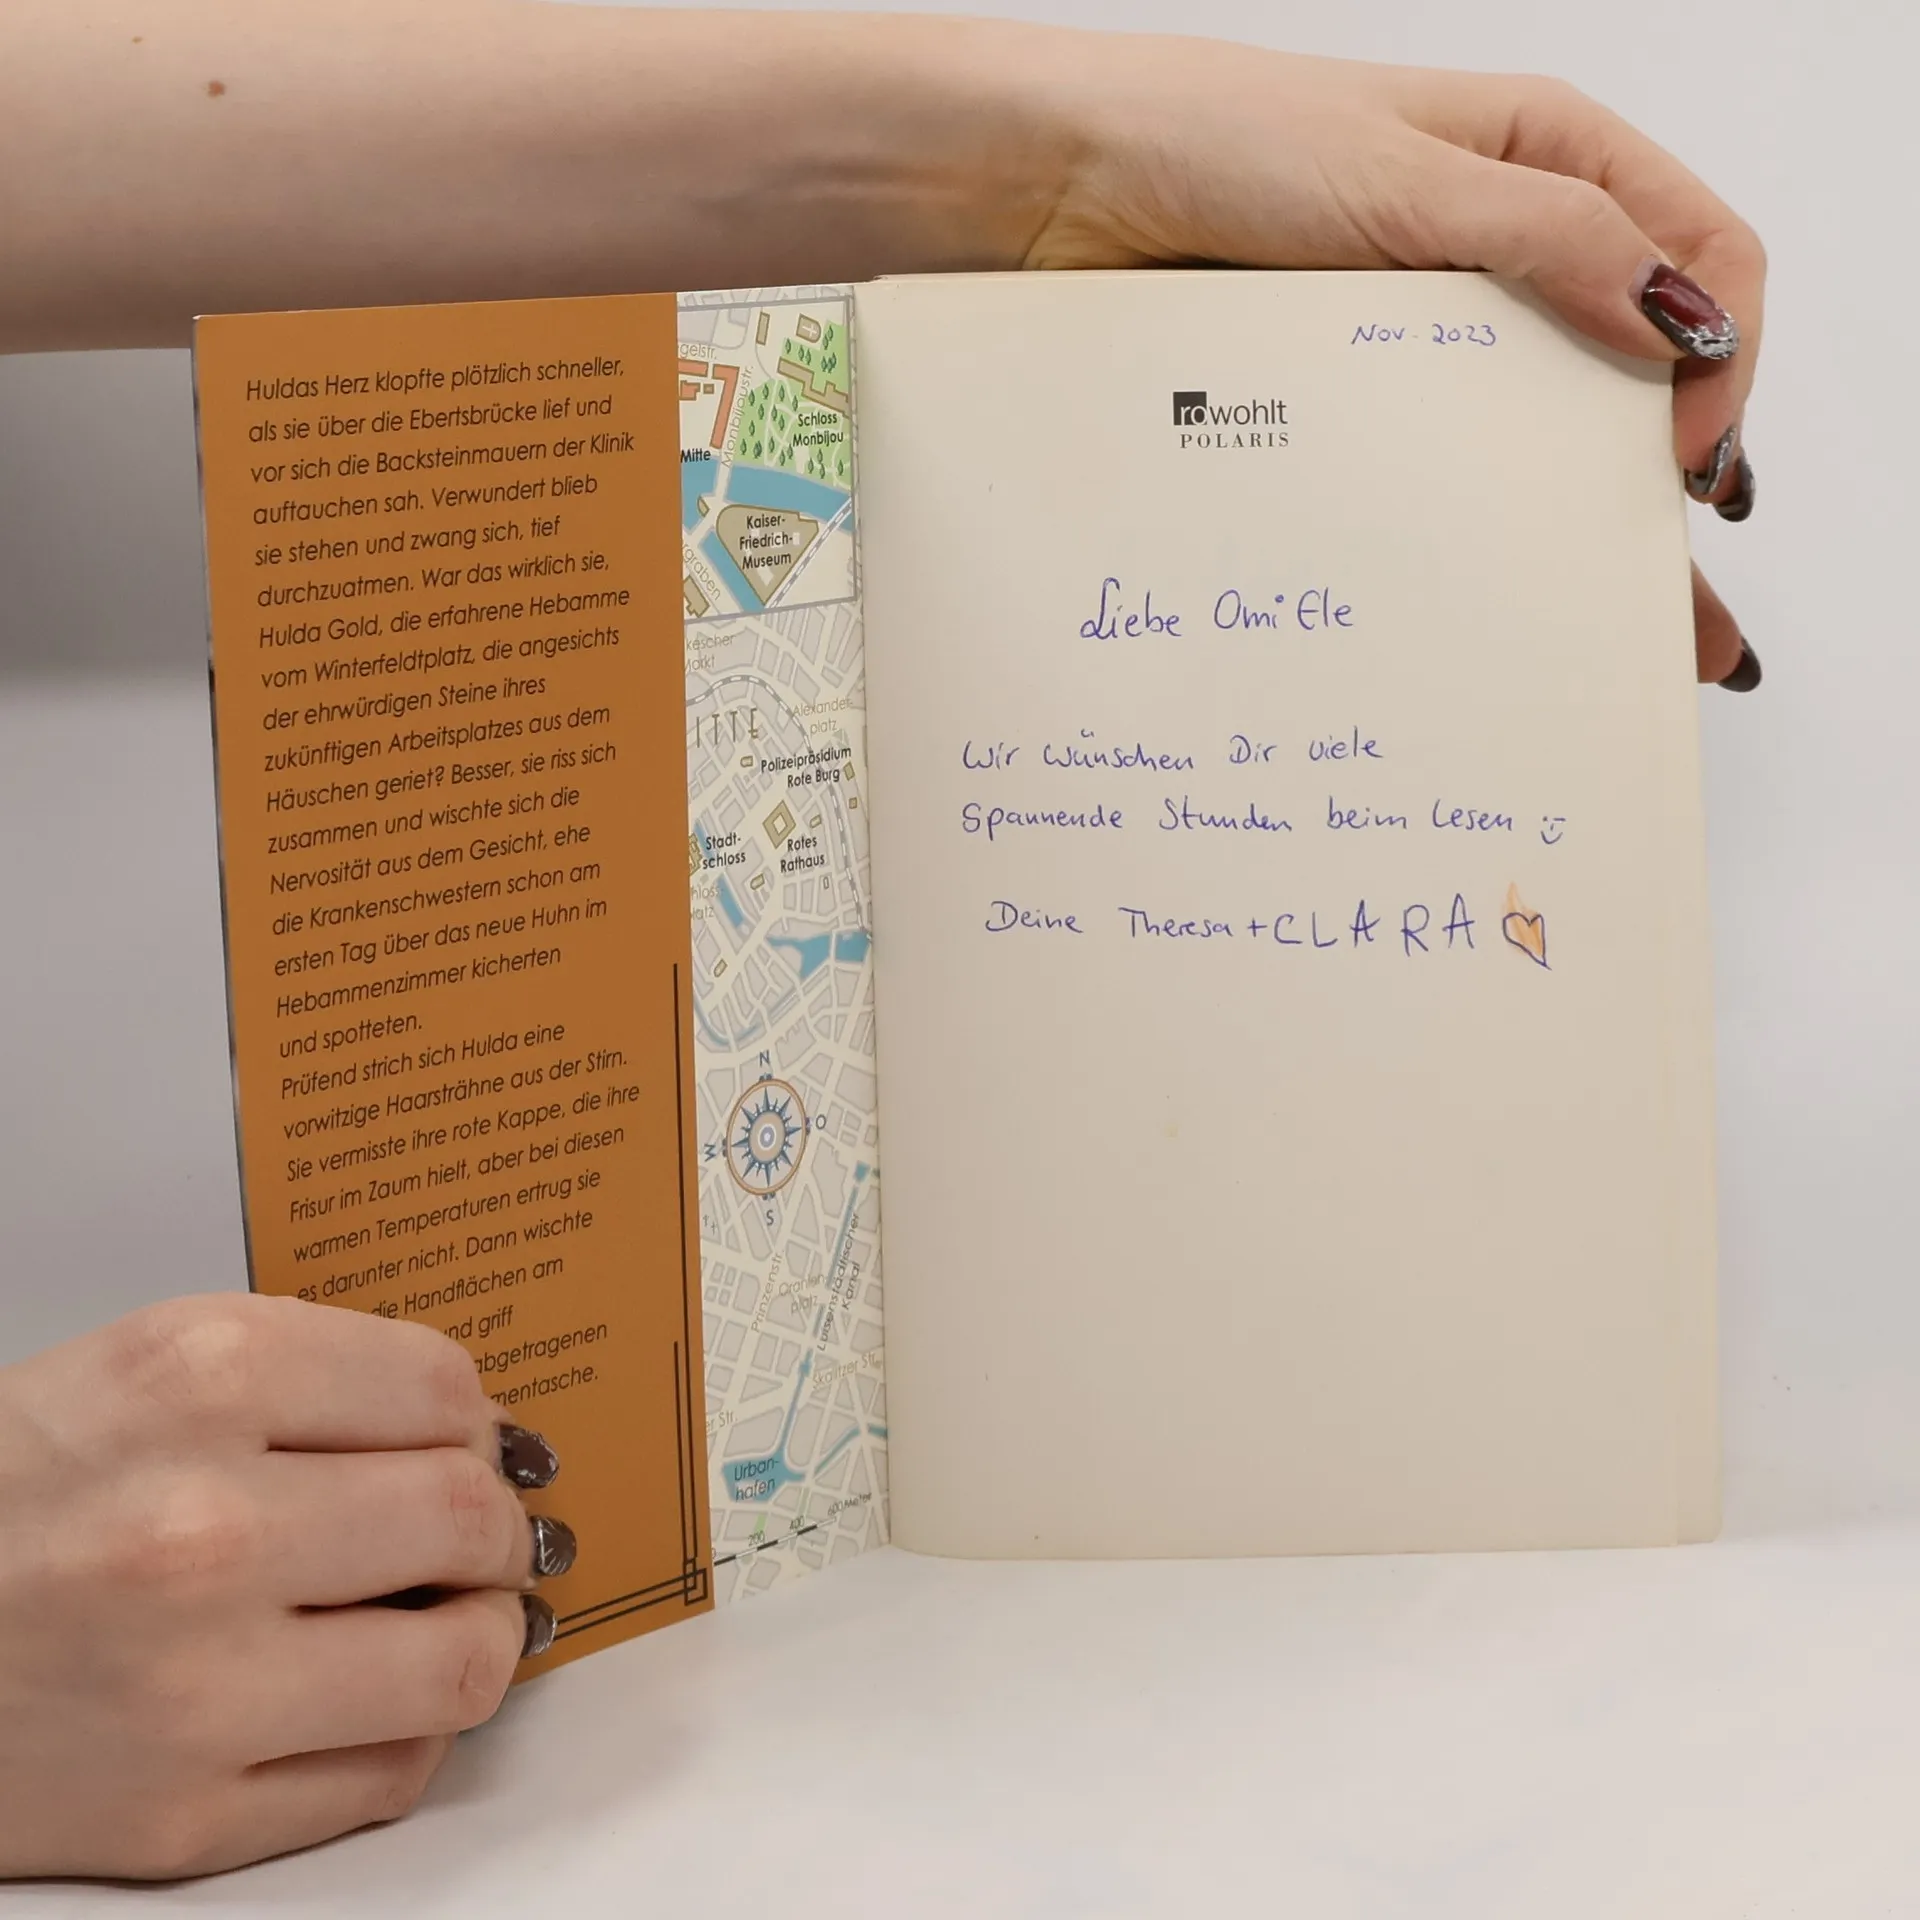 Huldas Herz klopfte plötzlich schneller,
als sie über die Ebertsbrücke lief und
vor sich die Backsteinmauern der Klinik
auftauchen sah. Verwundert blieb
sie stehen und zwang sich, tief
durchzuatmen. War das wirklich sie,
Hulda Gold, die erfahrene Hebamme
vom Winterfeldtplatz, die angesichts
der ehrwürdigen Steine ihres
zukünftigen Arbeitsplatzes aus dem
Häuschen geriet? Besser, sie riss sich
zusammen und wischte sich die
Nervosität aus dem Gesicht, ehe
die Krankenschwestern schon am
ersten Tag über das neue Huhn im
Hebammenzimmer kicherten
und spotteten.
Prüfend strich sich Hulda eine
vorwitzige Haarsträhne aus der Stirn.
Sie vermisste ihre rote Kappe, die ihre
Frisur im Zaum hielt, aber bei diesen
warmen Temperaturen ertrug sie
es darunter nicht. Dann wischte
die Handflächen am
nd griff
abgetragenen
mentasche.
gelstr.
Monbijoustr.
Schloss
Monbijou
Mitte
Kaiser-
Friedrich-
Museum
rgraben
kescher
Markt
ITTE
Alexander-
platz
Polizeipräsidium
Rote Burg
Stadt-
schloss
Rotes
Rathaus
hloss-
latz
N
O
W
S
Prinzenstr.
Oranien-
platz
Luisenstädtischer
Kanal
Skalitzer Str.
er Str.
Urban-
hafen
200
400
600 Meter
Nov. 2023
rowohlt
POLARIS
Liebe Omi Ele
Wir wünschen Dir viele
Spannende Stunden beim Lesen :)
Deine Theresa + CLARA ♡